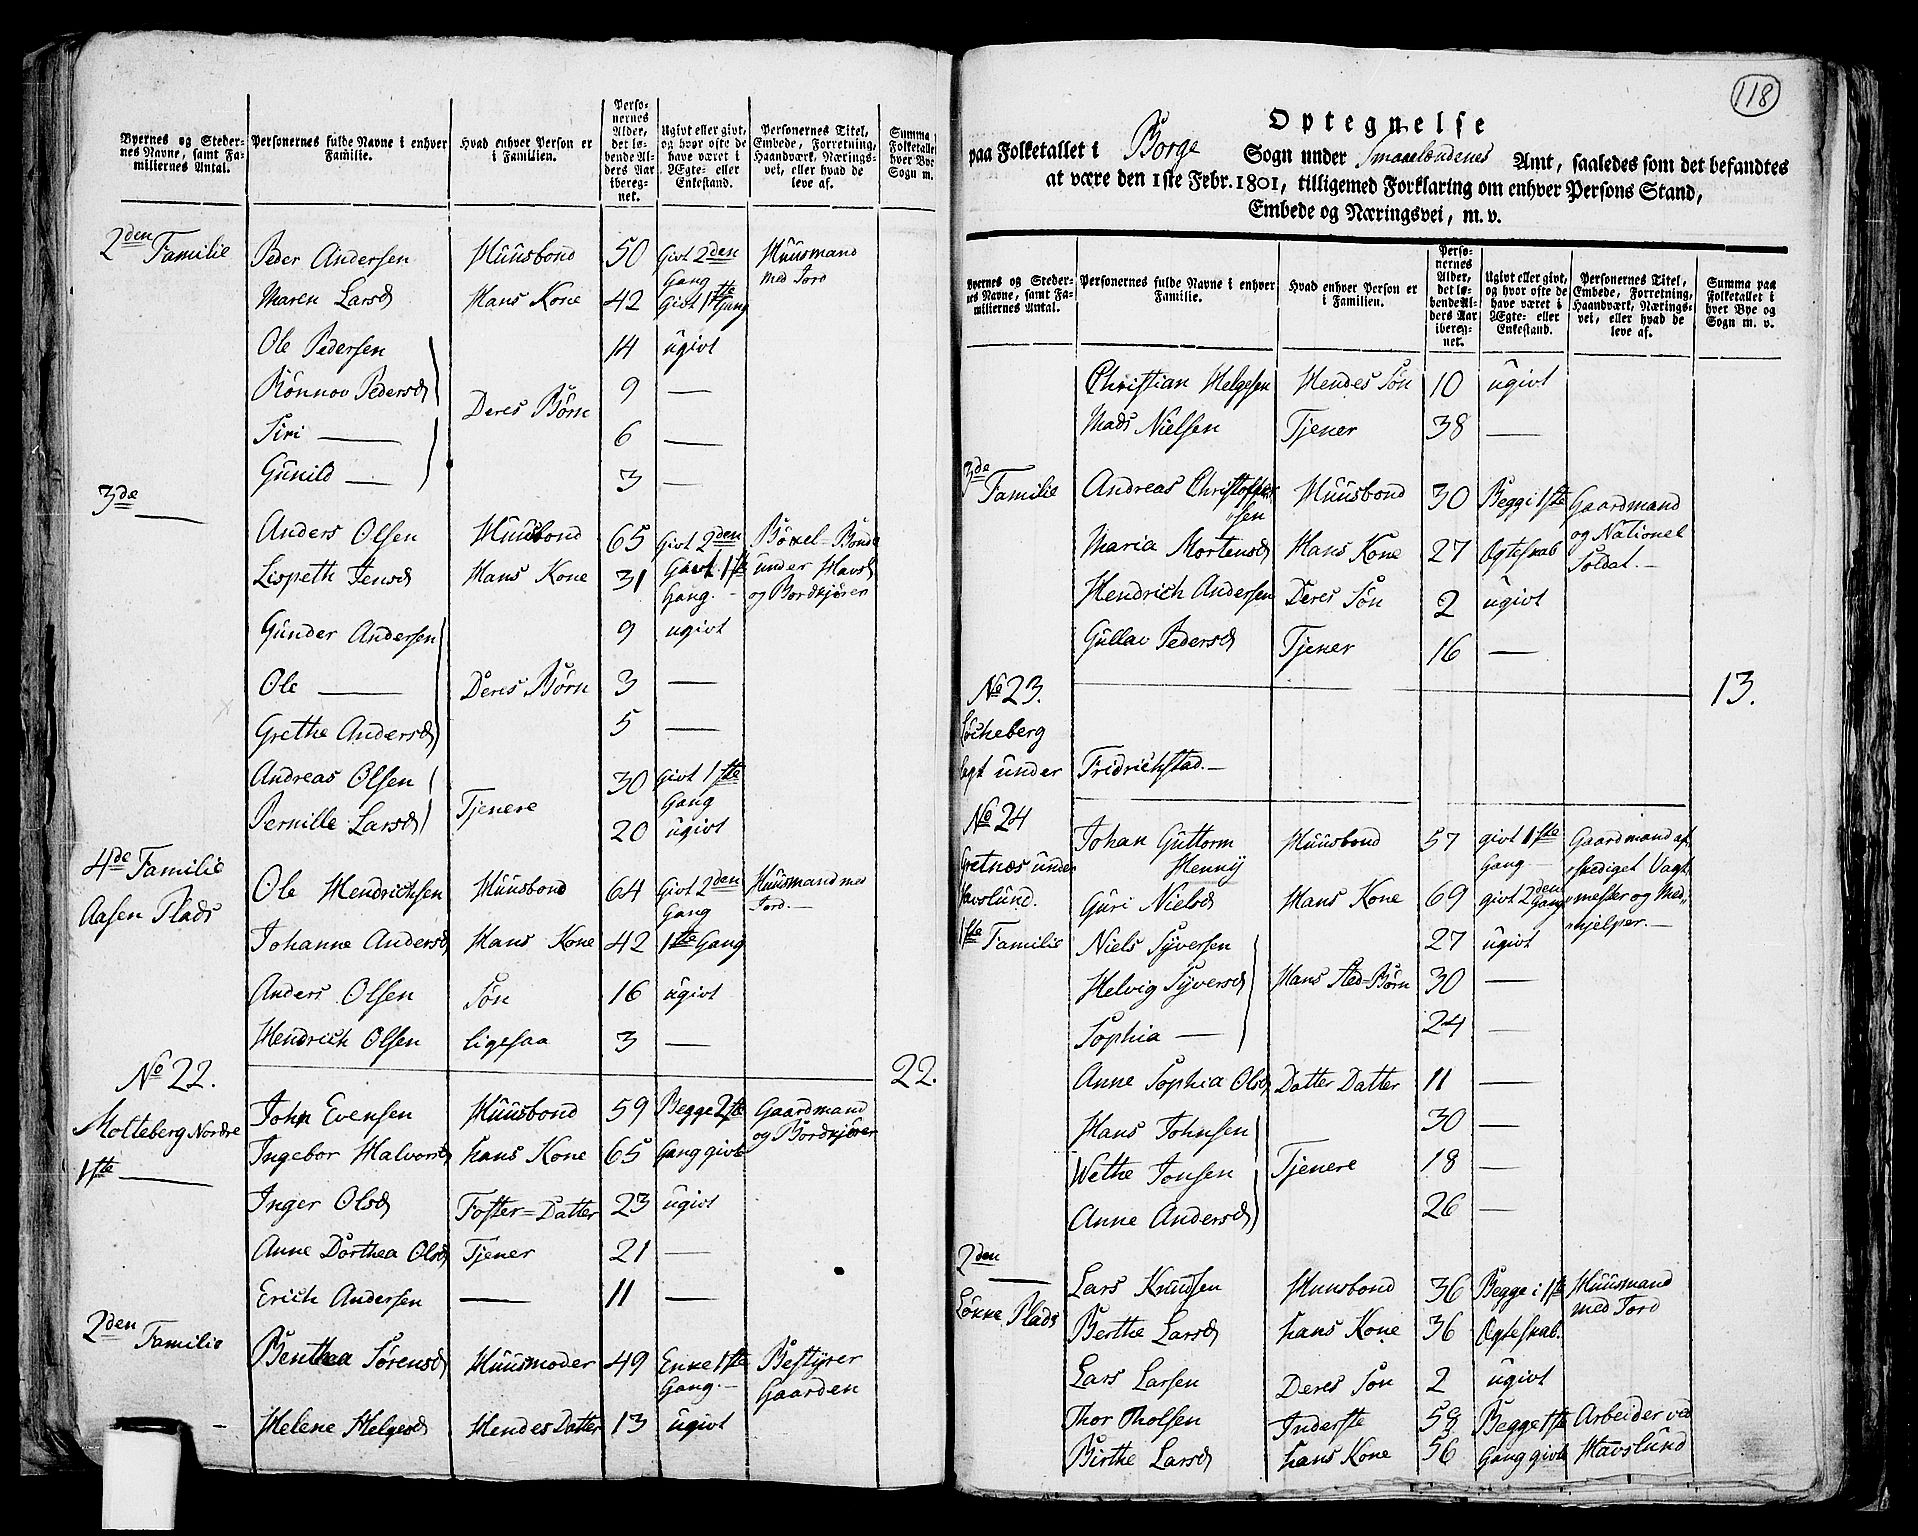 Byernes og Steder- Personernes fulde Navne i enhver Hvad enhver Person er Perso- Ugivt eller givt, Personernes Titel, Summa
nes Navne, samt Fa- Familie. i Familien. nernes og hvor ofte de Embede, Forretning, Folketalle
milliernes Antal. Alder, have været i Haandværk, Nærings- hver By
det lø- Ægte- eller vei, eller hvad de Sogn m.
bende Al- Enkestand. leve af.
ders Aar
ibereg-
net.
2den Familie Peder Andersen Huusbond 50 Givt 2den Huusmand
Gang med Jord
Maren Larsd Hans Kone 42 Givt 1ste Gang
Ole Pedersen 14 ugivt
Rönnov Pedersd 9 —
Deres Børn
Siri — 6 —
Gunild — 3 —
3de —
Anders Olsen Huusbond 65 Givt 2den Böxel-Bonde
Lispeth Jensd Hans Kone 31 Gang. 1ste under Havsd
Gang. - og Bordkjörer
Gunder Andersen 9 ugivt
Ole — Deres Børn 3 —
Grethe Andersd 5 —
Andreas Olsen 30 Givt 1ste
Tjenere Gang
Pernille Larsd 20 ugivt
4de Familie
Ole Hendrichsen Huusbond 64 Givt 2den Huusmand med
Aasen Plads Gang Jord.—
Johanne Andersd Hans Kone 42 1ste Gang
Anders Olsen Søn 16 ugivt
Hendrich Olsen ligesaa 3 —
No 22. 22.
John Evensen Huusbond 59 Begge 2te Gaardmand
Molteberg Nordre og Bordkjörer
Ingebor Halvorsd hans Kone 65 Gang givte
1ste —
Inger Olsd Foster=Datter 23 ugivt
Anne Dorthea Olsd Tjener 21 —
Erich Andersen — 11 —
2den Familie
Benthea Sörensd Huusmoder 49 Enke 1ste Bestyrer
Gang.- Gaarden
Helene Helgesd Hendes Datter 13 ugivt
118
Optegnelse
paa Folketallet i Borge Sogn under Smaaelændenes Amt, saaledes som det befandtes
at være den 1ste Febr. 1801, tilligemed Forklaring om enhver Persons Stand,
Embede og Næringsvei, m. v.
Byernes og Steder- Personernes fulde Navne i enhver Hvad enhver Person er Perso- Ugivt eller givt, Personernes Titel, Summa paa
nes Navne, samt Fa- Familie. i Familien. nernes og hvor ofte de Embede, Forretning, Folketallet i
milliernes Antal. Alder, have været i Haandværk, Nærings- hver Bye og
det lø- Ægte- eller vei, eller hvad de Sogn m. v.
bende Al- Enkestand. leve af.
ders Aar
ibereg-
net.
Christian Helgesen Hendes Søn 10 ugivt
Mads Nielsen Tjener 38 —
3de Familie Andreas Christoffer Huusbond 30 Begge i 1ste Gaardmand
sen og National
Maria Mortensd Hans Kone 27 Ægteskab Soldat.—
Hendrich Andersen Deres Søn 2 ugivt
Gullav Pedersd Tjener 16 —
No 23. 13.
Löcheberg
lagt under Fridrichstad.—
No 24
Johan Guttorm Huusbond 57 givt 1ste Gaardmand af
Gretnæs under Henny Gang — skediget Vagt
Havslund. Guri Nielsd Hans Kone 69 givt 2den Gang mester og Med
1ste Familie Niels Syversen 27 ugivt hjelper.—
Helvig Syversd Hans Sted=Børn 30 —
Sophia — 24 —
Anne Sophia Olsd Datter Datter 11 —
Hans Johnsen 30 —
Wethe Jonsen Tjenere 18 —
Anne Andersd 26 —
2den —
Lars Knudsen Huusbond 36 Begge i 1ste Huusmand
Lönne Plads med Jord
Berthe Larsd hans Kone 36 Ægteskab.
Lars Larsen Deres Søn 2 ugivt
Thor Tholsen Inderste 58 Begge 1ste Arbeider ved
Birthe Larsd hans Kone 56 Gang givte Havslund